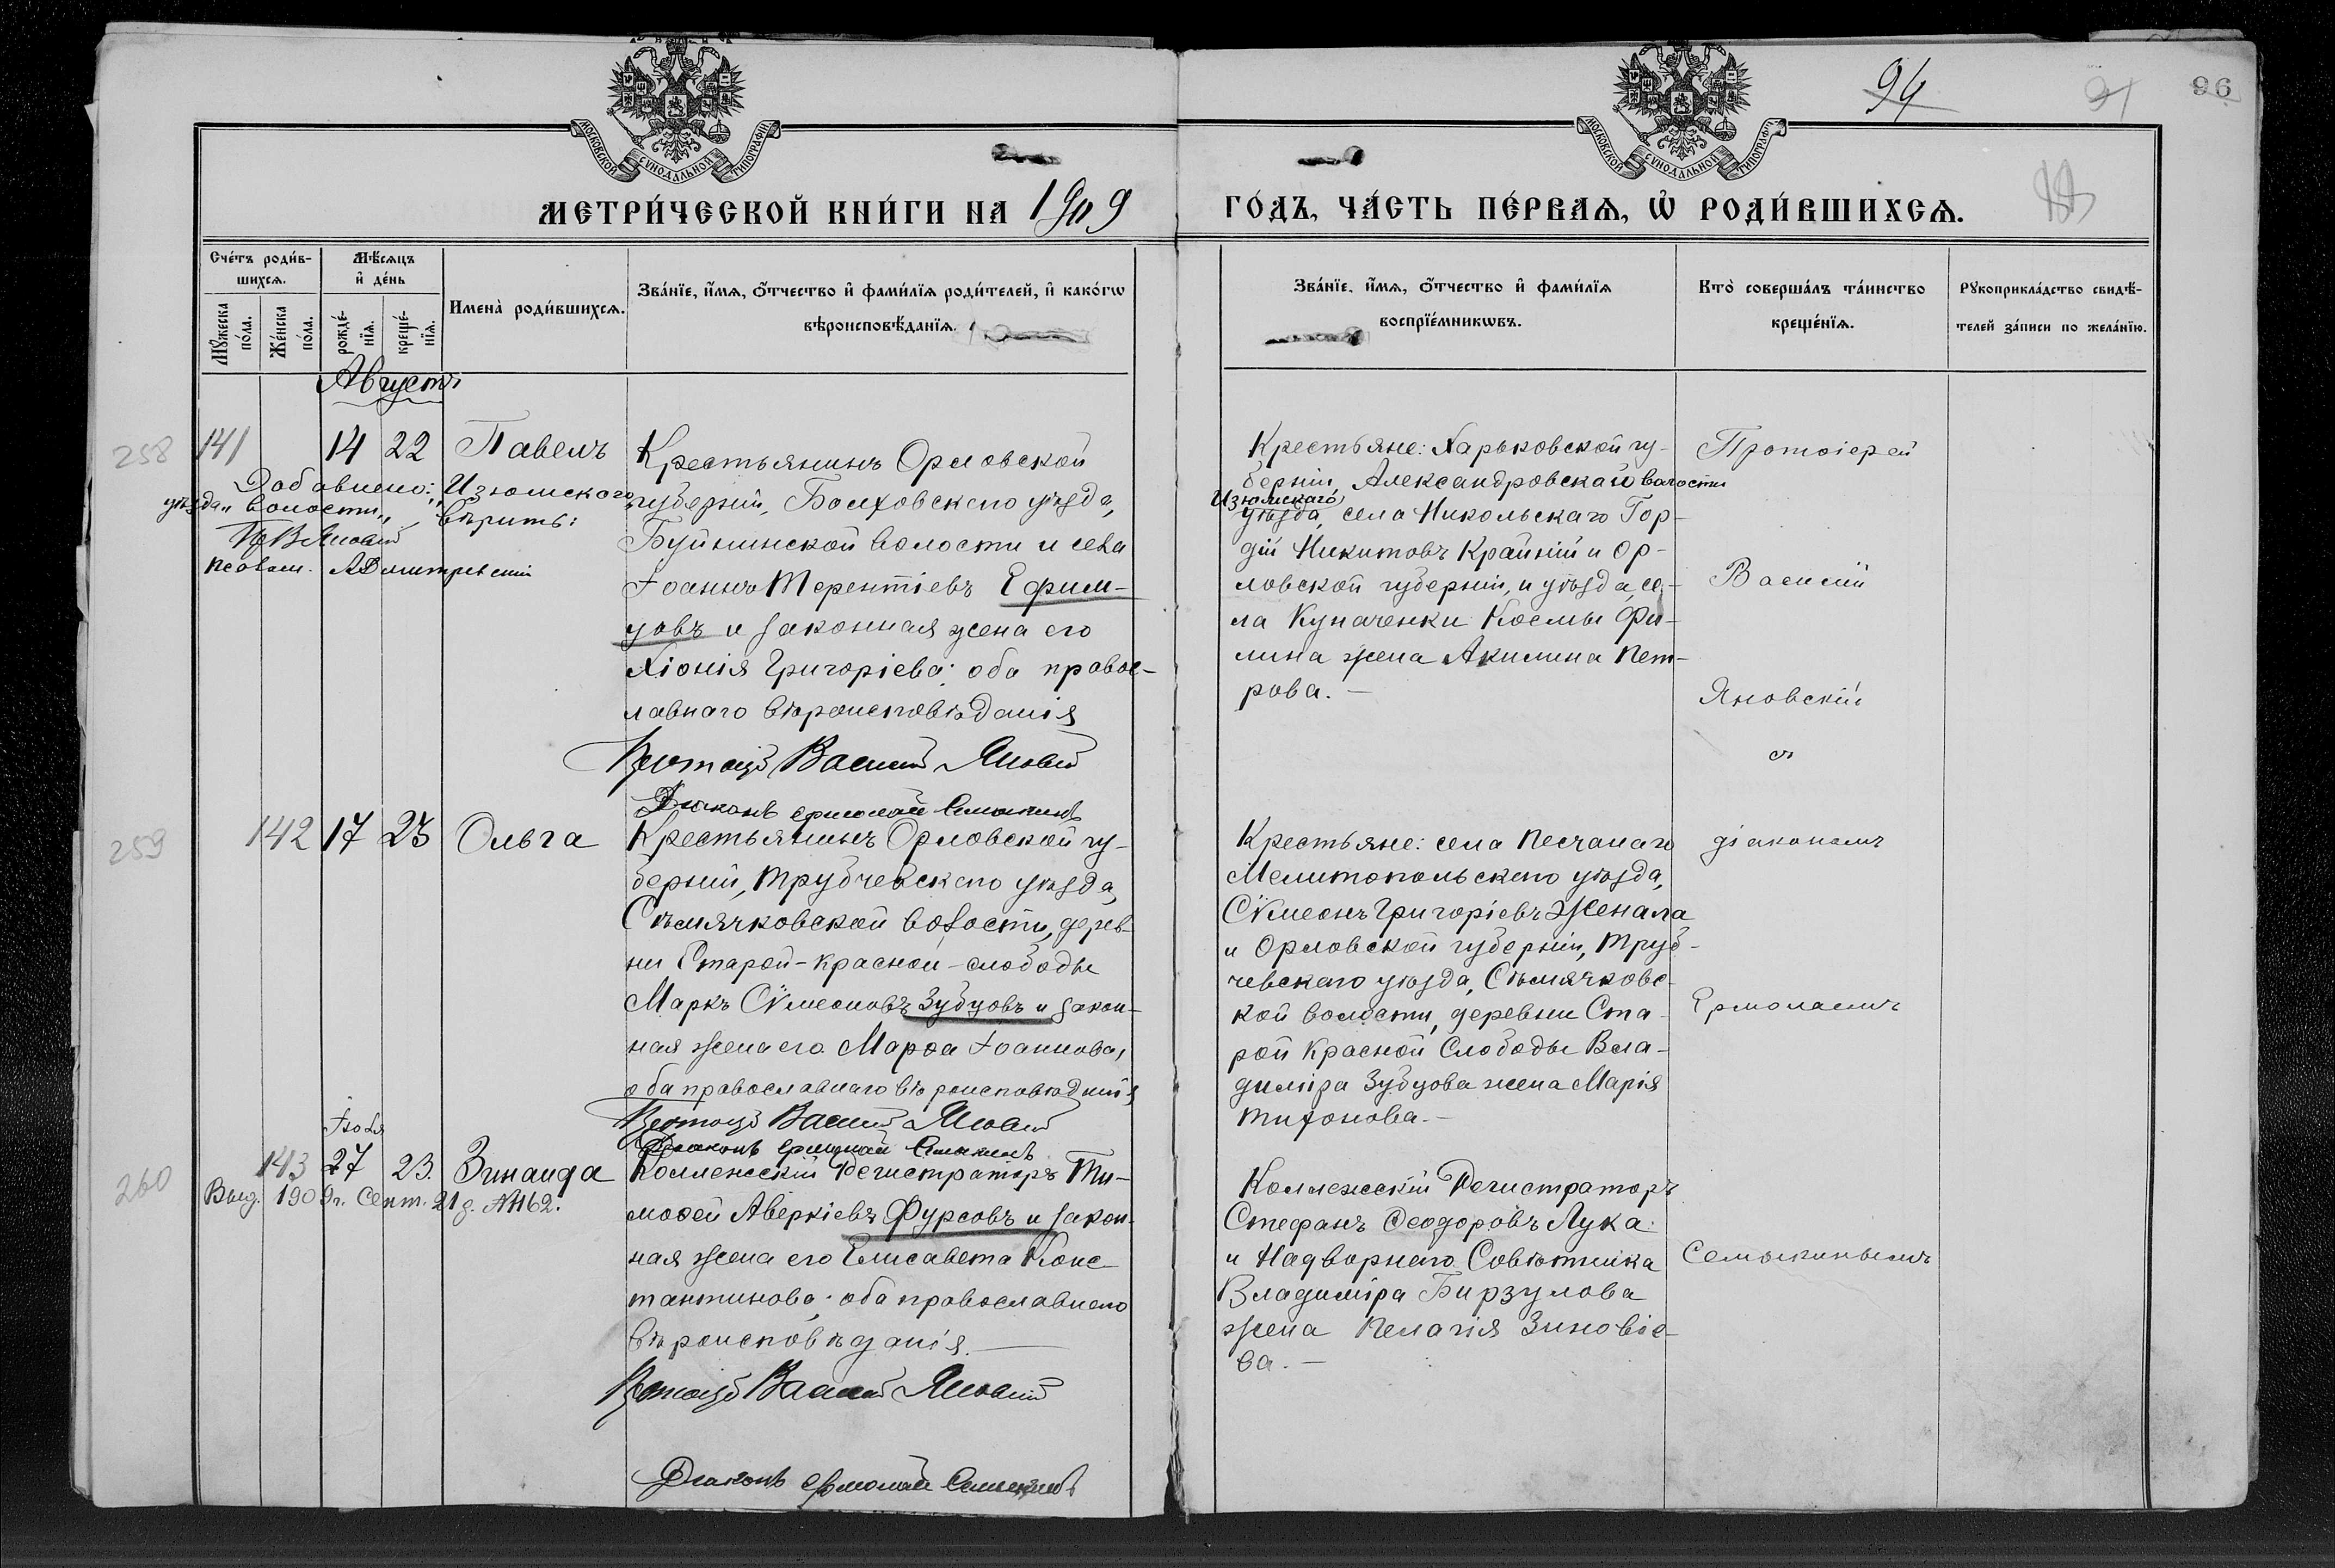 94
91
96
МОСКОВСКОЙ СѴНОДАЛЬНОЙ ТИПОГРАФІИ
МОСКОВСКОЙ СѴНОДАЛЬНОЙ ТИПОГРАФІИ
МЕТРИ́ЧЕСКОЙ КНИ́ГИ НА 1909
ГО́ДЪ, ЧА́СТЬ ПЕ́РВАѦ, Ѡ҆ РОДИ́ВШИХСѦ.
Сче́тъ роди́в-
шихсѧ.
Мꙋ́жеска по́ла.
Же́нска по́ла.
Мѣ́сѧцъ
и҆ де́нь
рожде́-нїѧ.
креще́-нїѧ.
Имена̀ роди́вшихсѧ.
Зва́нїе, и҆́мѧ, ѻ҆́тчество и҆ фами́лїѧ роди́телей, и҆ како́гѡ
вѣроисповѣ́данїѧ.
Зва́нїе, и҆́мѧ, ѻ҆́тчество и҆ фами́лїѧ
воспрїе́мникѡвъ.
Кто̀ соверша́лъ та́инство
креще́нїѧ.
Рꙋкоприкла́дство свидѣ́-
телей за́писи по жела́нїю.
Августъ
258
141
14
22
Павелъ
Добавлено: "Изюмского
уѣзда" "волости" вѣрить:
Псалом. А Димитревскій
Крестьянинъ Орловской
губерніи, Болховскаго уѣзда,
Буйнинской волости и села
Іоаннъ Терентіевъ Ефим-
цовъ и законная жена его
Хіонія Григоріева; оба правос-
лавнаго вѣроисповѣданія
Протоіер Василій Яновскій
Діаконъ Ермолай Семыкинъ
Крестьяне: Харьковской гу-
берніи, Александровской волости
Изюмскаго
уѣзда, села Никольскаго Гор-
дій Никитовъ Крайній и Ор-
ловской губерніи, и уѣзда, се-
ла Куначенки Космы Фи-
лина жена Акилина Пет-
рова. —
Протоіерей
Василій
Яновскій
съ
259
142
17
23
Ольга
Крестьянинъ Орловской гу-
берніи, Трубчевскаго уѣзда,
Сѣмячковской волости, дерев-
ни Старой-красной-слободы
Маркъ Сѵмеоновъ Зубцовъ и закон-
ная жена его Марѳа Іоаннова,
оба православнаго вѣроисповѣданія
Протоіер Василій Яновскій
Діаконъ Ермолай Семыкинъ
Крестьяне: села Песчанаго
Мелитопольскаго уѣзда,
Сѵмеонъ Григоріевъ Женала
и Орловской губерніи, Труб-
чевскаго уѣзда, Сѣмячковс-
кой волости, деревни Ста-
рой Красной Слободы Вла-
диміра Зубцова жена Марія
Тихонова. —
діакономъ
Ермолаемъ
260
143
Іюля
27
23.
Зинаида
Выд. 1909 г. Сент. 21 д. №162.
Коллежскій Регистраторъ Ти-
моѳей Аверкіевъ Фурсовъ и закон-
ная жена его Елисавета Конс-
тантинова; оба православнаго
вѣроисповѣданія. —
Протоіер Василій Яновскій
Діаконъ Ермолай Семыкинъ
Коллежскій Регистраторъ
Стефанъ Ѳеодоровъ Лука
и Надворнаго Совѣтника
Владиміра Бирзулова
жена Пелагія Зиновіе-
ва. —
Семыкинымъ